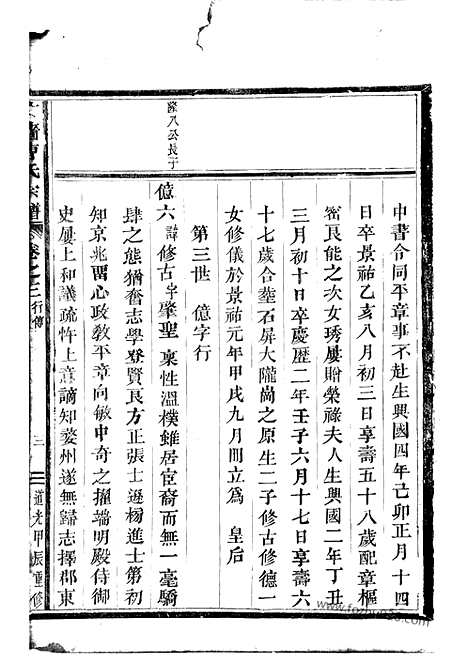 中書令同平章事不赴生興國四年己卯正月十四
日卒景祐乙亥八月初三日享壽五十八歲配章樞
密良能之次女琇屢贈榮祿夫人生興國二年丁丑
三月初十日卒慶歷二年壬子六月十七日享壽六
十七歲合塟石屏大隴崗之原生二子修古修德一
女修儀於景祐元年甲戌九月冊立爲 皇后
第三世 億字行
億六 諱修古字肇聖 稟性溫樸雖居宦裔而無一毫驕
肆之態猶奮志學登賢良方正張士遜榜進士第初
知京兆留心政教平章向敏中奇之擢端明殿侍御
史屢上和議疏忤上意謫知婺州遂無歸志擇郡東
公長子
曹氏宗譜 卷之二 行傳 三 道光甲辰重修
www.fozhu920.com